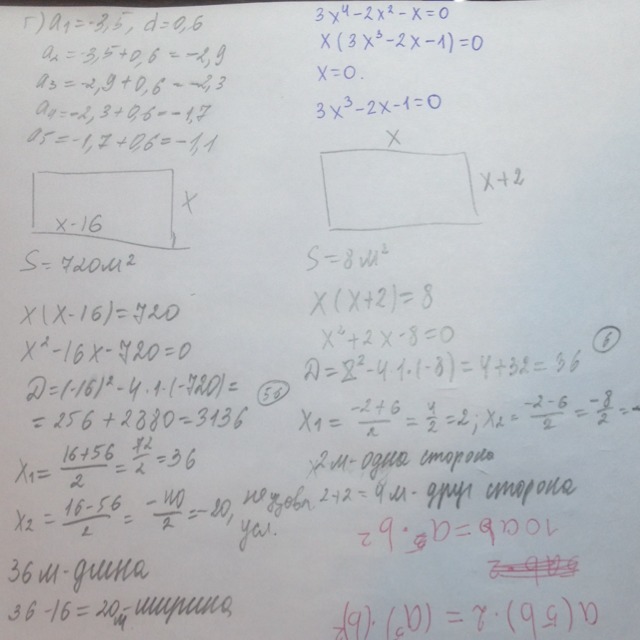 г) a₁=-3,5, d=0,6
a₂=-3,5+0,6=-2,9
a₃=-2,9+0,6=-2,3
a₄=-2,3+0,6=-1,7
a₅=-1,7+0,6=-1,1
x
x-16
S=720м²
x(x-16)=720
x²-16x-720=0
D=(-16)²-4·1·(-720)=
=256+2880=3136
56
x₁=16+56/2=72/2=36
x₂=16-56/2=-40/2=-20, не удовл.
усл.
36м-длина
36-16=20м-ширина
3x⁴-2x²-x=0
x(3x³-2x-1)=0
x=0.
3x³-2x-1=0
x
x+2
S=8м²
x(x+2)=8
x²+2x-8=0
6
D=2²-4·1·(-8)=4+32=36
x₁=-2+6/2=4/2=2; x₂=-2-6/2=-8/2=-
2м-одна сторона
2+2=4м-друг сторона